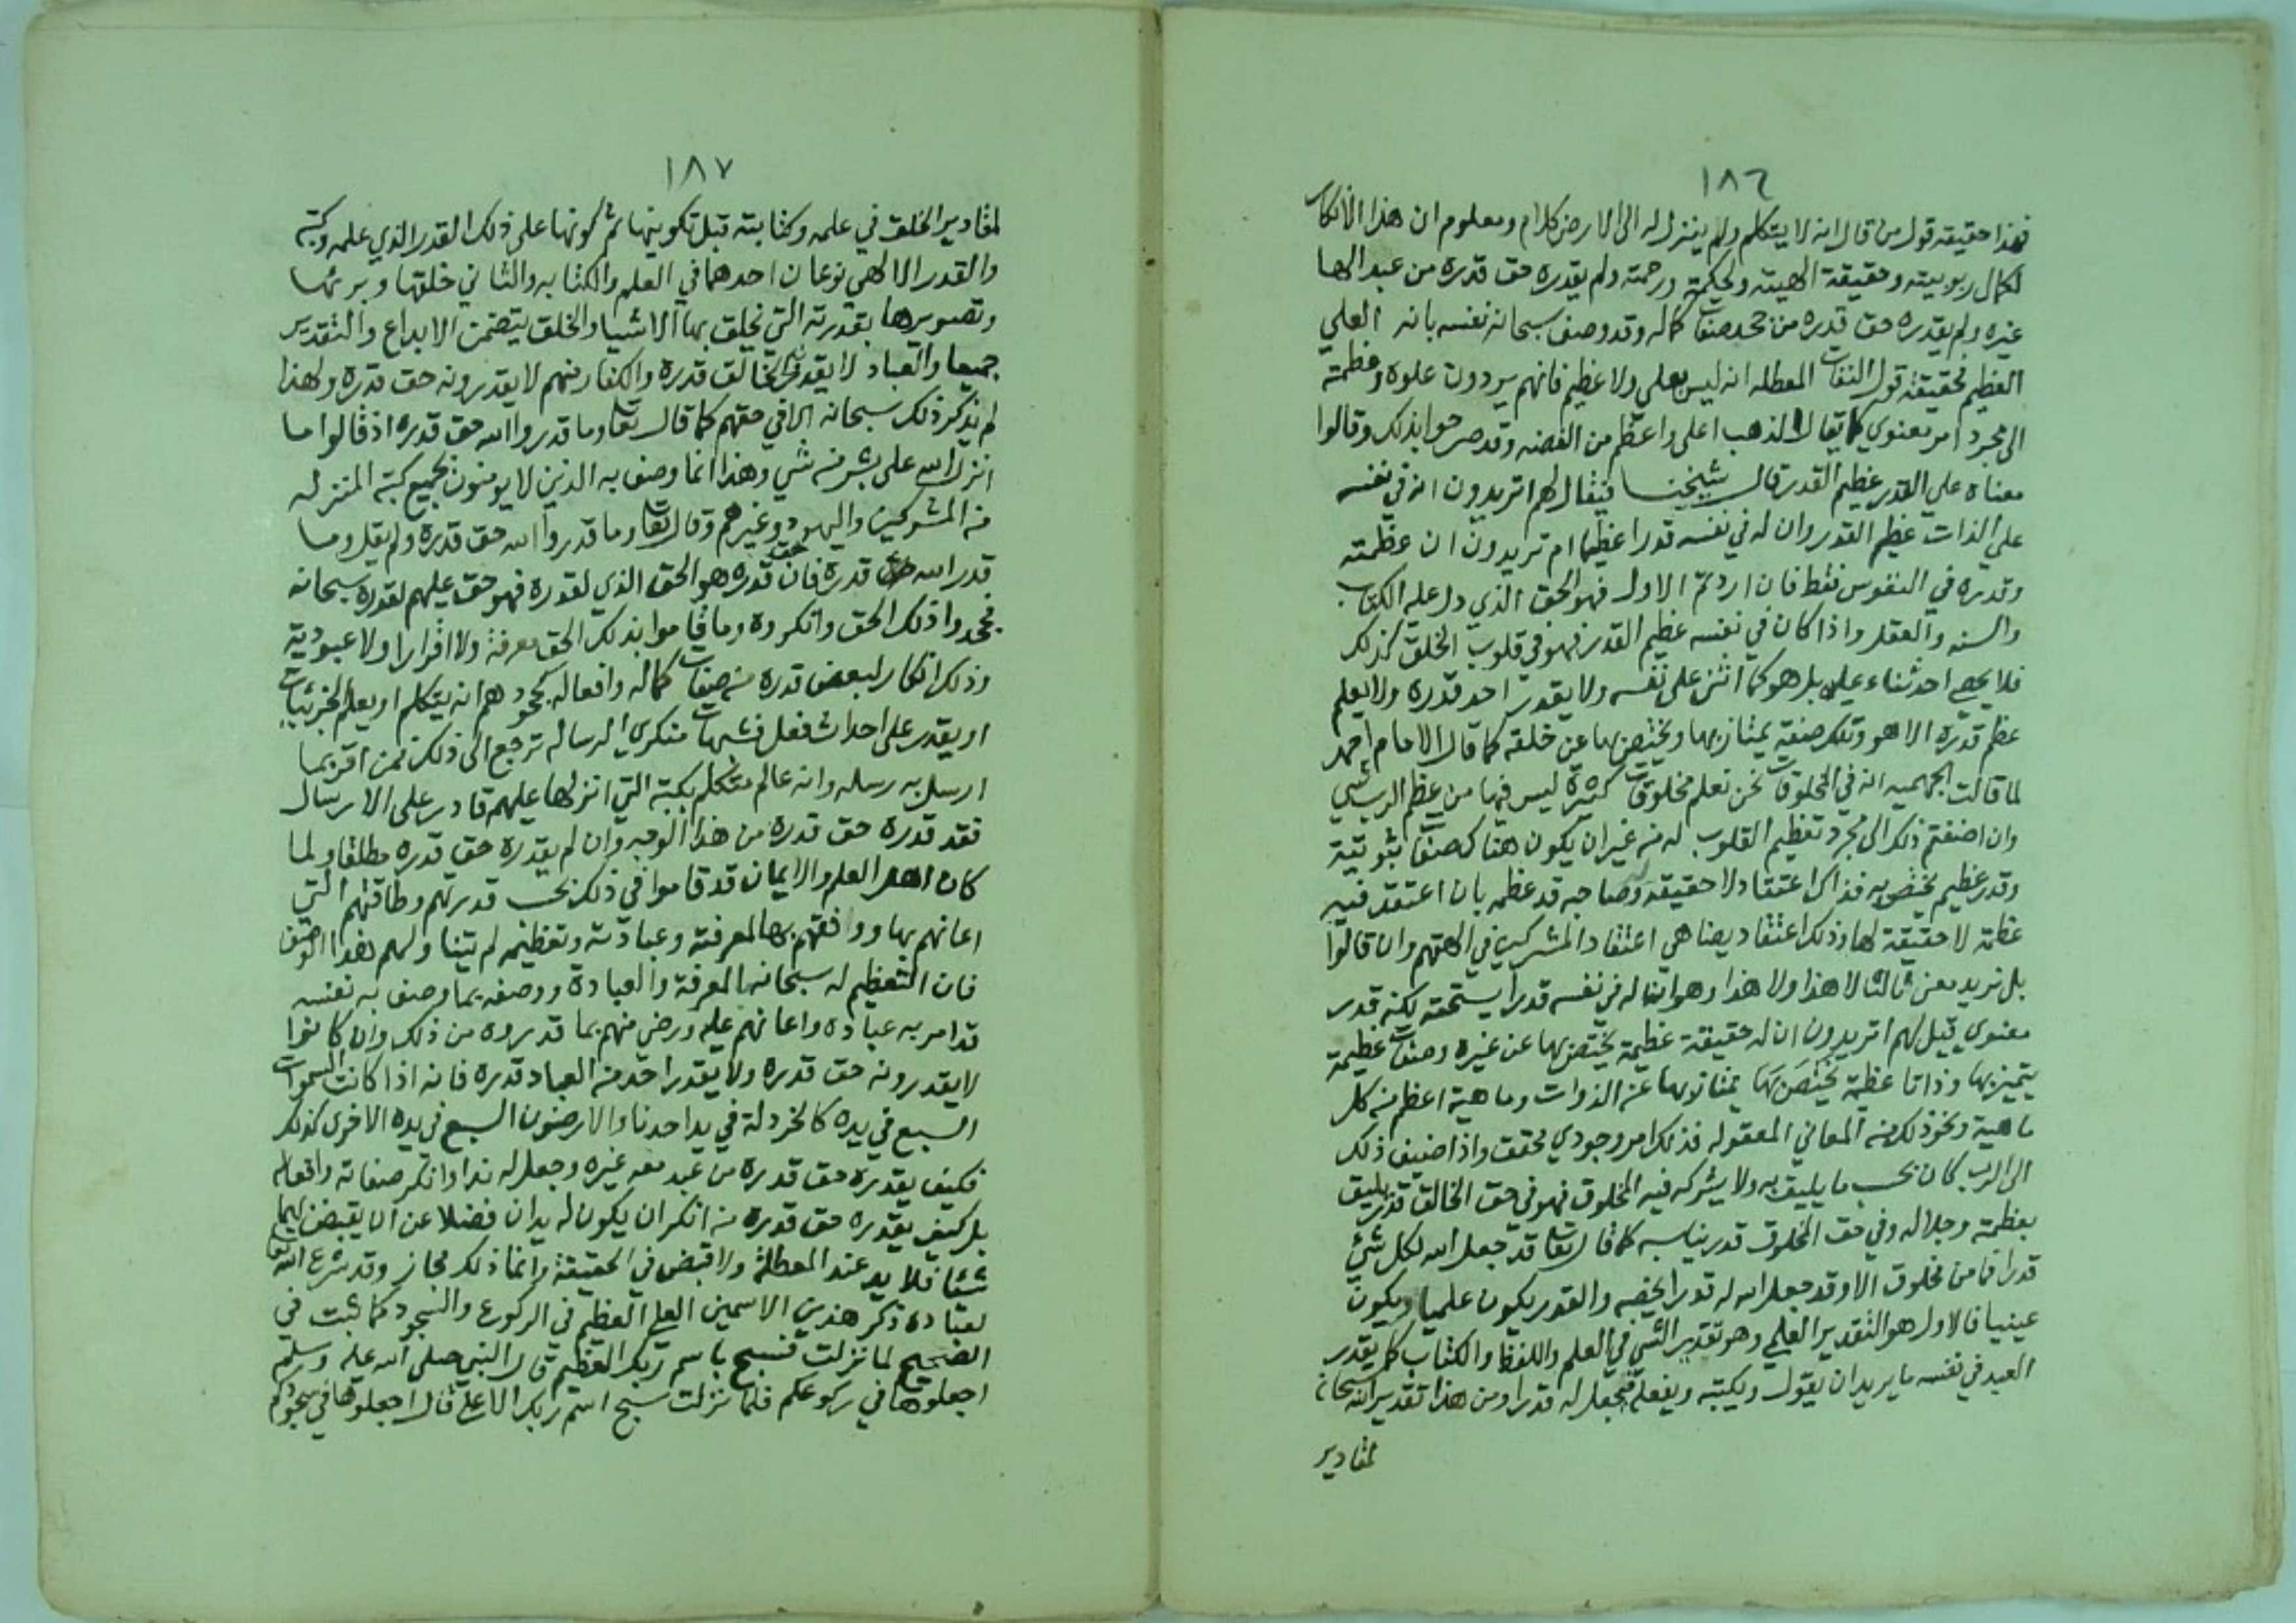 ١٨٦
فهذا حقيقة قول من قال انه لا يتكلم ولم ينزل له الى الارض كلام ومعلوم ان هذا الانكار
لكمال ربوبيته وحقيقة الهيته ولحكمته ورحمته ولم يقدره حق قدره من عبد الها
غيره ولم يقدره حق قدره من جحد صفات كماله وقد وصف سبحانه نفسه بانه العلي
العظيم فحقيقة قول النفات المعطله انه ليس بعلي ولا عظيم فانهم يردون علوه وعظمته
الى مجرد امر معنوي كما يقال الذهب اعلى واعظم من الفضه وقد صرحوا بذلك وقالوا
معناه علي القدر عظيم القدر قال شيخنا فيقال لهم اتريدون انه في نفسه
علي الذات عظيم القدر وان له في نفسه قدرا عظيما ام تريدون ان عظمته
وقدره في النفوس فقط فان اردتم الاول فهو الحق الذي دل عليه الكتاب
والسنه والعقل واذا كان في نفسه عظيم القدر فهو في قلوب الخلق كذلك
فلا يحصي احد ثناء عليه بل هو كما اثنى على نفسه ولا يقدر احد قدره ولا يعلم
عظم قدره الا هو وتلك صفة يمتاز بها ويختص بها عن خلقه كما قال الامام احمد
لما قالت الجهميه انه في المخلوقات نحن نعلم مخلوقات كثيرة ليس فيها من عظم الرب شي
وان اضفتم ذلك الى مجرد تعظيم القلوب له من غير ان يكون هناك صفات ثبوتية
وقدر عظيم يختص به فذاك اعتقاد لا حقيقة له وصاحبه قد عظمه بان اعتقد فيه
عظمة لا حقيقة لها وذلك اعتقاد يضاهي اعتقاد المشركين في الهتهم وان قالوا
بل نريد معنى ثالثا لا هذا ولا هذا وهو ان له في نفسه قدرا يستحقه لكنه قدر
معنوي قيل لهم اتريدون ان له حقيقة عظيمة يختص بها عن غيره وصفات عظيمة
يتميز بها وذاتا عظيمة يختص بها تمتاز بها عن الذوات وماهية اعظم من كل
ماهية ونحو ذلك من المعاني المعقوله فذلك امر وجودي محقق واذا اضيف ذلك
الى الرب كان بحسب ما يليق به ولا يشركه فيه المخلوق فهو في حق الخالق قدر يليق
بعظمته وجلاله وفي حق المخلوق قدر يناسبه كما قال تعا قد جعل الله لكل شي
قدرا فما من مخلوق الا وقد جعل الله له قدرا يخصه والقدر يكون علميا ويكون
عينيا فالاول هو التقدير العلمي وهو تقدير الشي في العلم واللفظ والكتاب كما يقدر
العبد في نفسه ما يريد ان يقول ويكتبه ويفعله فيجعل له قدرا ومن هذا تقدير الله سبحانه
لمقادير
١٨٧
لمقادير الخلق في علمه وكتابته قبل تكوينها ثم كونها على ذلك القدر الذي علمه وكتبه
والقدر الالهي نوعان احدهما في العلم والكتابه والثاني خلقها وبرئها
وتصويرها بقدرته التي يخلق بها الاشيا والخلق يتضمن الابداع والتقدير
جميعا والعباد لا يقدرون الخالق قدره والكفار منهم لا يقدرونه حق قدره ولهذا
لم يذكر ذلك سبحانه الا في حقهم كما قال تعا وما قدروا الله حق قدره اذ قالوا ما
انزل الله على بشر من شي وهذا انما وصف به الذين لا يومنون بجميع كتبه المنزله
من المشركين واليهود وغيرهم وقال تعا وما قدروا الله حق قدره ولم يقل وما
قدر الله قدره فان حق قدره هو الحق الذي لقدره فهو حق عليهم لقدره سبحانه
فجحدوا ذلك الحق وانكروه وما قاموا بذلك الحق معرفة ولا اقرارا ولا عبودية
وذلك انكار لبعض قدره من صفات كماله وافعاله كجحودهم انه يتكلم او يعلم الجزئيات
او يقدر على احداث فعل فشبهات منكري الرساله ترجع الى ذلك فمن اقر بما
ارسل به رسله وانه عالم متكلم بكتبه التي انزلها عليهم قادر على الارسال
فقد قدره حق قدره من هذا الوجه وان لم يقدره حق قدره مطلقا ولما
كان اهل العلم والايمان قد قاموا في ذلك بحسب قدرتهم وطاقتهم التي
اعانهم بها ووافقهم بها لمعرفته وعبادته وتعظيمه لم يتناولهم هذا الوصف
فان التعظيم له سبحانه المعرفة والعبادة ووصفه بما وصف به نفسه
قد امر به عباده واعانهم عليه ورضي منهم بما قدروه من ذلك وان كانوا
لا يقدرونه حق قدره ولا يقدر احد من العباد قدره فانه اذا كانت السموات
السبع في يده كالخردلة في يد احدنا والارضون السبع في يده الاخرى كذلك
فكيف يقدره حق قدره من عبد معه غيره وجعل له ندا وانكر صفاته وافعاله
بل كيف يقدره حق قدره من انكر ان يكون له يدان فضلا عن ان يقبض بهما
شيئا فلا يد عند المعطلة ولا قبض في الحقيقة وانما ذلك مجاز وقد شرع الله تعا
لعباده ذكر هذين الاسمين العلي العظيم في الركوع والسجود كما ثبت في
الصحيح لما نزلت فسبح باسم ربك العظيم قال النبي صلى الله عليه وسلم
اجعلوها في ركوعكم فلما نزلت سبح اسم ربك الاعلى قال اجعلوها في سجودكم